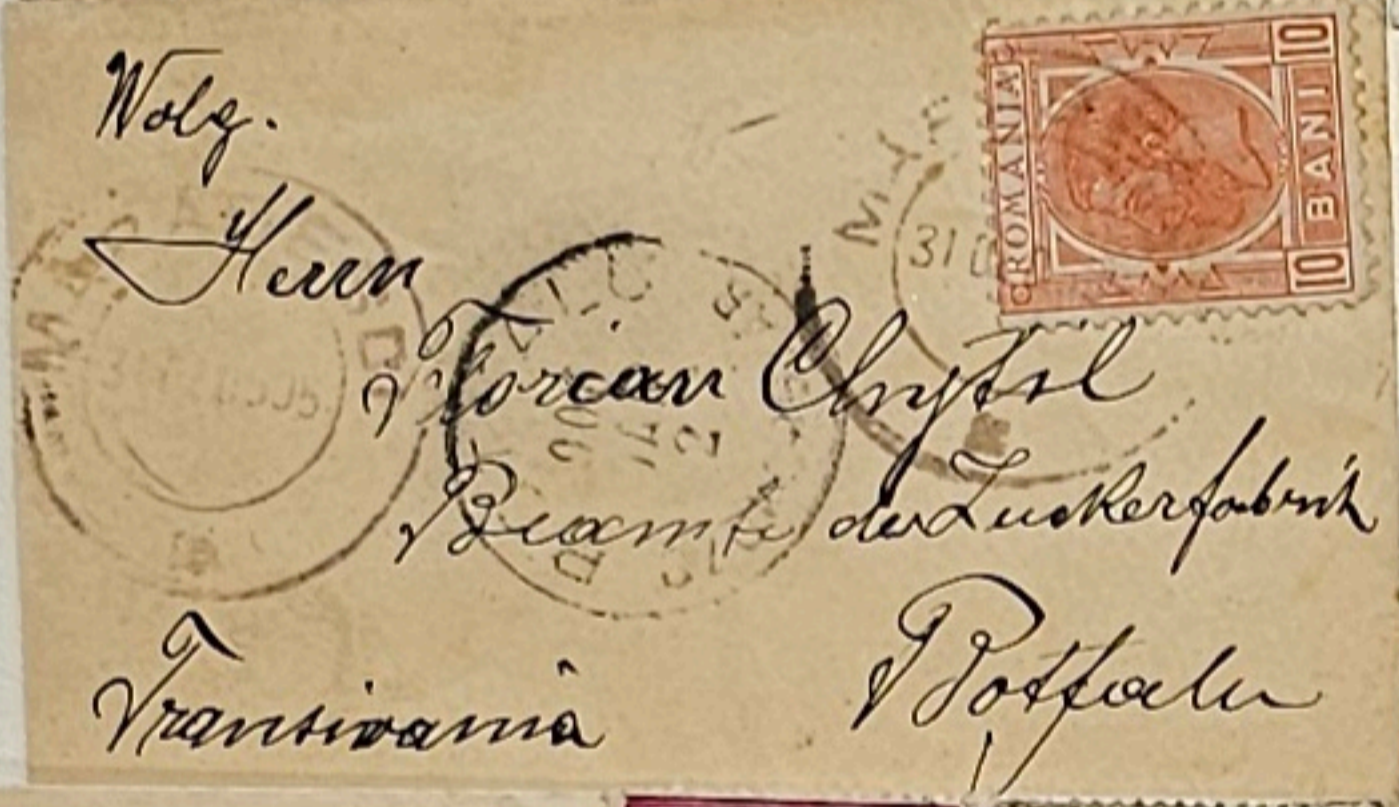 Wolg.
Herrn
Florian Chytil
Beamte der Zuckerfabrik
Botfalu
Transivania
ROMANIA
10 BANI 10
31